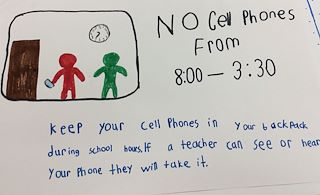 NO Cell Phones
From
8:00 – 3:30
keep your cell Phones in your backPack
during school hours.If a teacher can see or hear
Your Phone they will take it.